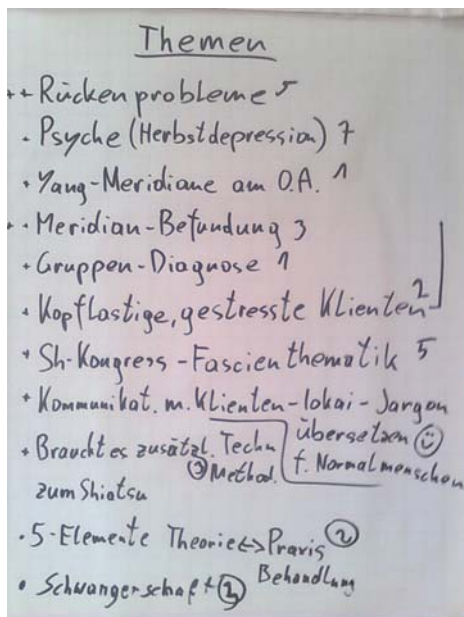 Themen
++ Rückenprobleme 5
• Psyche (Herbstdepression) 7
+ Yang-Meridiane am O.A. 1
+• Meridian-Befundung 3
+ Gruppen-Diagnose 1
+ Kopflastige, gestresste Klienten 2
+ Sh-Kongress - Fascienthematik 5
+ Kommunikat. m. Klienten - Iokai - Jargon
übersetzen ☺
f. Normalmenschen
+ Braucht es zusätzl. Techn
Method.
zum Shiatsu
• 5-Elemente Theorie <-> Praxis 2
Behandlung
• Schwangerschaft